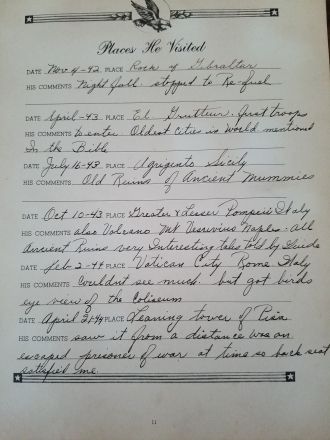 Places He Visited
DATE Nov 4-42 PLACE Rock of Gibraltar
HIS COMMENTS Night fall stopped to Re-fuel
DATE April-43 PLACE El first troops
HIS COMMENTS to enter Oldest Cities in World mentioned
In the Bible
DATE July 16-43 PLACE Agrigento Sicily
HIS COMMENTS Old Ruins of Ancient Mummies
DATE Oct 10-43 PLACE Greater & Lesser Pompeii Italy
HIS COMMENTS also Volcano Mt Vesuvius Naples-all
Ancient Ruins very Interesting tales told by Guide
DATE Feb 2-44 PLACE Vatican City Rome Italy
HIS COMMENTS Couldnt see much but got birds
eye view of the Coliseum
DATE April 21-44 PLACE Leaning tower of Pisa
HIS COMMENTS saw it from a distance was an
escaped prisoner of war at time so back seat
satisfied me.
11